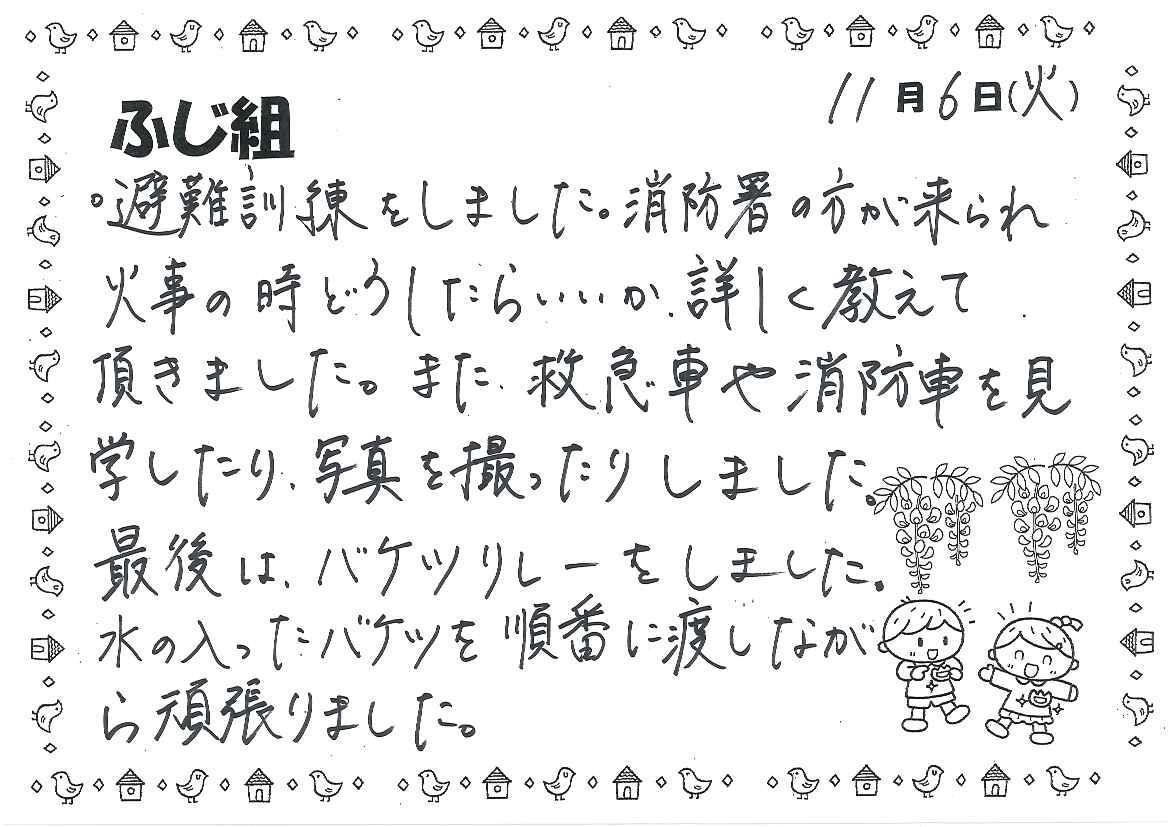 11月6日(火)
ふじ組
。避難訓練をしました。消防署の方が来られ
火事の時どうしたらいいか、詳しく教えて
頂きました。また、救急車や消防車を見
学したり、写真を撮ったりしました。
最後は、バケツリレーをしました。
水の入ったバケツを順番に渡しなが
ら頑張りました。